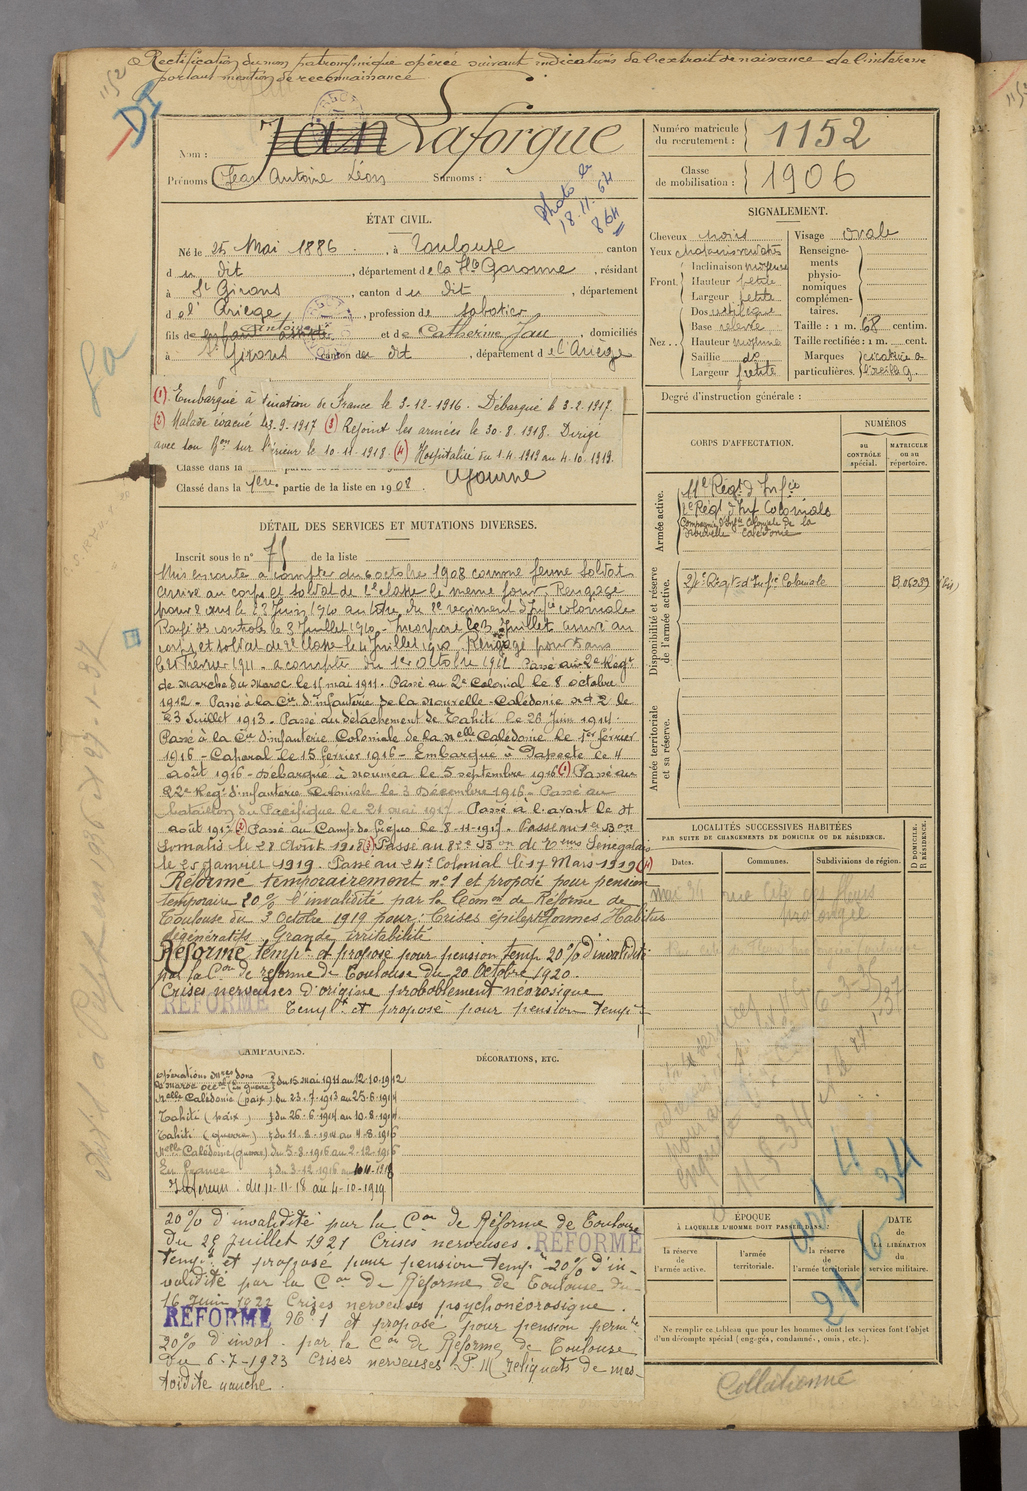 Rectification du nom patronymique opérée suivant indications de l'extrait de naissance de l'intéressé
portant mention de reconnaissance
1152
DI
Nom : Jan Laforgue
Prénoms Jean Antoine Léon Surnoms :
photo le
18.11.64
864
Numéro matricule du recrutement : 1152
Classe de mobilisation : 1906
ÉTAT CIVIL.
Né le 25 Mai 1886, à Toulouse canton
d u dit, département de la Hte Garonne, résidant
à St Girons, canton d u dit, département
d e l'Ariège, profession de sabotier
fils de enfant assisté Antoine et de Catherine Jan, domiciliés
à St Girons, canton du dit, département d e l'Ariège
(1) Embarqué à destination de France le 3-12-1916. Débarqué le 3-2-1917.
(2) Malade évacué 4-9-1917 (3) Rejoint les armées le 30-8-1918. Dirigé
avec son Bon sur l'érieur le 10-11-1918. (4) Hospitalisé du 1-4-1919 au 4-10-1919.
Classé dans la partie de la liste en 190
Classé dans la 1ere partie de la liste en 1908.
Ajourné
DÉTAIL DES SERVICES ET MUTATIONS DIVERSES.
Inscrit sous le n° 75 de la liste
Mis en route à compter du 6 octobre 1908 comme jeune soldat
arrivé au corps et soldat de 2e classe le même jour. Rengagé
pour 2 ans le 23 Juin 1910 au titre du 2e régiment d'Infie coloniale
Rayé des contrôles le 3 Juillet 1910. Incorporé le 3 Juillet arrivé au
corps et soldat de 2e classe le 4 Juillet 1910. Rengagé pour 5 ans
le février 1911. à compter du 1er Octobre 1911 Passé au 2e Régt
de marche du Maroc le 15 mai 1911. Passé au 2e Colonial le 8 octobre
1912. Passé à la Cie d'infanterie de la Nouvelle-Calédonie n° 2 le
23 Juillet 1913. Passé au détachement de Tahiti le 26 Juin 1914.
Passé à la Cie d'infanterie Coloniale de la Nelle Calédonie le 1er février
1916 - Caporal le 15 février 1916 - Embarqué à Papeete le 4
août 1916 - Débarqué à Nouméa le 5 septembre 1916 (1) Passé au
22e Régt d'infanterie Coloniale le 3 Décembre 1916 - Passé au
bataillon du Pacifique le 21 mai 1917. Passé à l'avant le
août 1917 (2) Passé au Camp de Fréjus le 8-11-1917. Passé au 1er Bon
Somalis le 28 Août 1918 (3) Passé au 82e Bon de Sénégalais
le 25 janvier 1919. Passé au 24e Colonial le 17 Mars 1919 (4)
Réformé temporairement n° 1 et proposé pour pension
temporaire 20% d'invalidité par la Comon de Réforme de
Toulouse du 3 Octobre 1919 pour : Crises épileptiformes Habitus
dégénératifs. Grande irritabilité
Réformé tempt et proposé pour pension temp 20% d'invalidité
par la Con de réforme de Toulouse du 20 Octobre 1920.
Crises nerveuses d'origine probablement névrosique
RÉFORMÉ Tempt et proposé pour pension tempre
CAMPAGNES.
DÉCORATIONS, ETC.
opérations dans
du 15 mai 1911 au 12-10-1912
Nelle Calédonie (paix) du 23-7-1913 au 25-6-1914
Tahiti (paix) du 26-6-1914 au 10-8-1914
Tahiti (guerre) du 11-8-1914 au 4-8-1916
Nelle Calédonie (guerre) du 5-8-1916 au 2-12-1916
En France du 3-12-1916 au 10-11-1918
Intérieur : du 11-11-18 au 4-10-1919
20% d'invalidité par la Con de Réforme de Toulouse
du 25 Juillet 1921 Crises nerveuses. RÉFORMÉ
tempt et proposé pour pension tempre 20% d'in-
validité par la Con de Réforme de Toulouse du
16 Juin 1922 Crises nerveuses psychonévrosique.
RÉFORMÉ N° 1 et proposé pour pension permte
20% d'inval. par la Con de Réforme de Toulouse
du 6-7-1923 Crises nerveuses P.M reliquats de mas-
toïdite gauche.
SIGNALEMENT.
Cheveux noirs
Yeux
Front Inclinaison moyenne
Hauteur petite
Largeur petite
Nez Dos rectiligne
Base relevée
Hauteur moyenne
Saillie do
Largeur petite
Visage ovale
Renseignements physionomiques complémentaires.
Taille : 1 m. 68 centim.
Taille rectifiée : 1 m. cent.
Marques particulières. cicatrice à l'oreille g.
Degré d'instruction générale :
CORPS D'AFFECTATION.
NUMÉROS
au CONTRÔLE spécial.
MATRICULE ou au répertoire.
Armée active.
11e Régt d'Infie
2e Régt d'Inf Coloniale
Compagnie d'Infie Coloniale de la
Nouvelle Calédonie
Disponibilité et réserve de l'armée active.
Régt d'Infie Coloniale
Armée territoriale et sa réserve.
LOCALITÉS SUCCESSIVES HABITÉES
PAR SUITE DE CHANGEMENTS DE DOMICILE OU DE RÉSIDENCE.
Dates.
Communes.
Subdivisions de région.
D DOMICILE. R RÉSIDENCE.
mai 34 rue
prolongée
11-8-34
art 4
21-6-34
ÉPOQUE
À LAQUELLE L'HOMME DOIT PASSER DANS :
la réserve de l'armée active.
l'armée territoriale.
la réserve de l'armée territoriale
DATE de LA LIBÉRATION du service militaire.
Ne remplir ce tableau que pour les hommes dont les services font l'objet
d'un décompte spécial (engagés, condamnés, omis, etc.).
Collationné